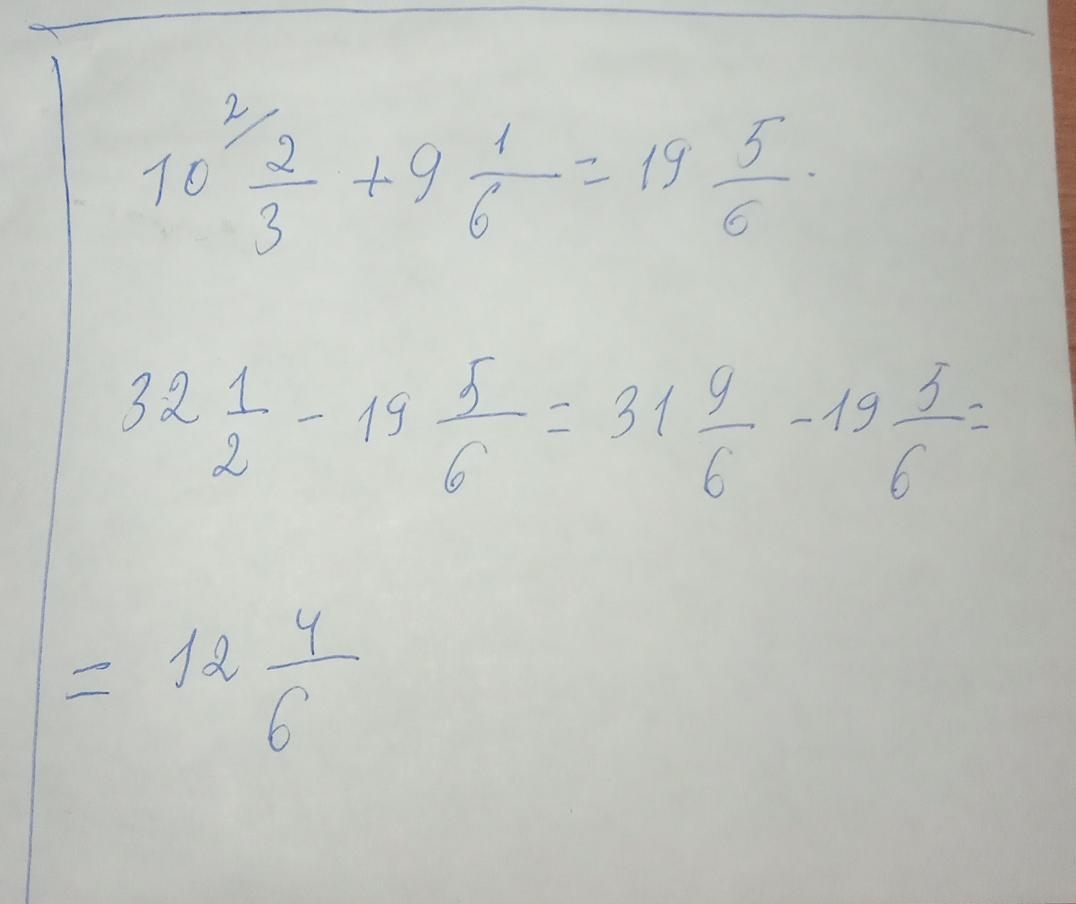 10 2/ 2/3 + 9 1/6 = 19 5/6.
32 1/2 - 19 5/6 = 31 9/6 - 19 5/6 =
= 12 4/6